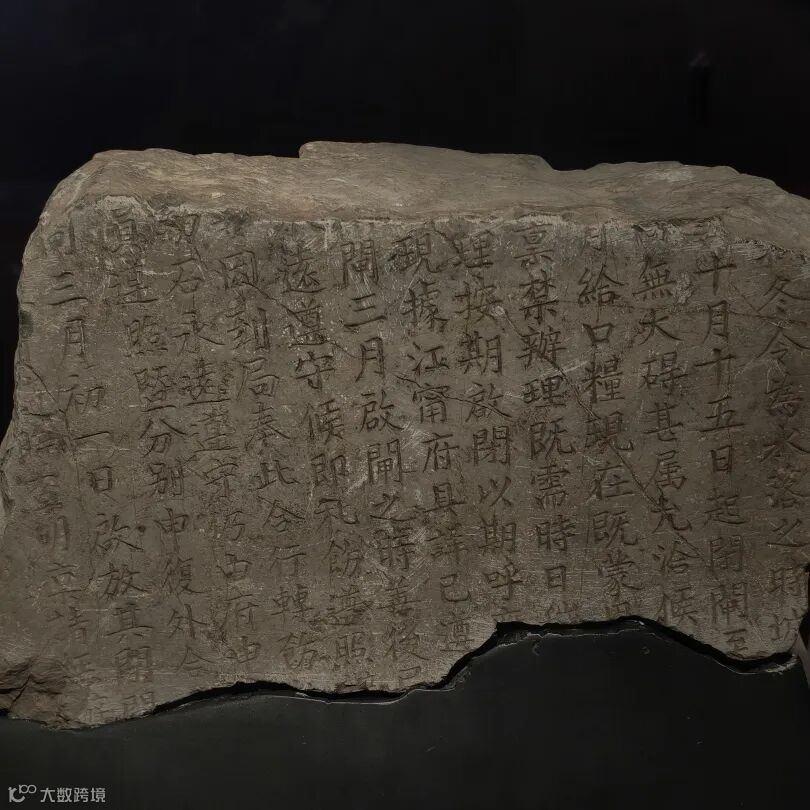 冬令為水落之時
十月十五日起閉閘至
無大碍甚属允洽候
給口糧現在既蒙
稟禁辦理既需時日
理按期啟閉以期呼
現據江甯府具詳已遵
閘三月啟閘之時善後
遠遵守候即札飭遵照
因到局奉此合行轉飭
石永遠遵守仍由府申
真遵照暨分别申復外合
三月初一日啟放其閉閘
大数跨境